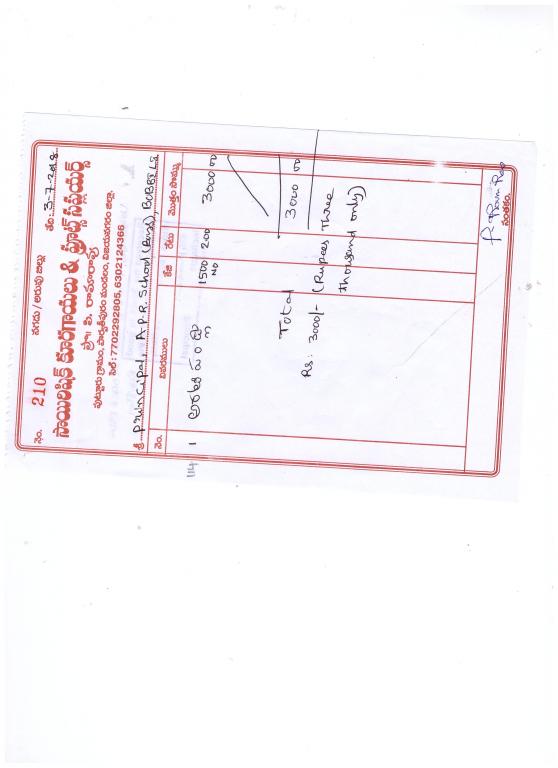 నెం. 210 నగదు / అరువు బిల్లు తేది: 3-7-2018
సాయిరిషిక్ కూరగాయలు & ఫ్రూట్స్ సప్లయర్స్
ప్రొ॥ పి. రామారావు
పుట్టూరు గ్రామం, పార్వతీపురం మండలం, విజయనగరం జిల్లా.
సెల్: 7702292805, 6302124366
శ్రీ Principal, A.P.R. School (Boys), BOBBILI
నెం. వివరములు కేజి రేటు మొత్తం సొమ్ము
1 అరటి పండ్లు 1500 NO 200 3000 00
Total 3000 00
Rs: 3000/- (Rupees Three
thousand only)
P. Rama Rao
సంతకం.